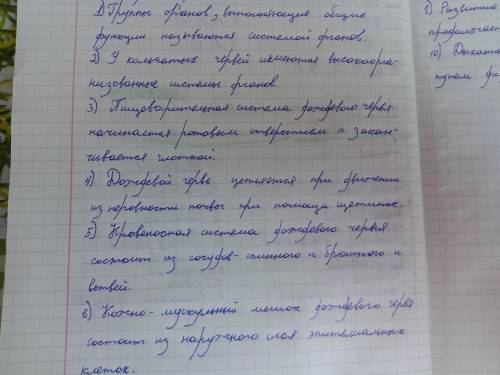 1) Группы органов, выполняющие общие
функции называются системой органов.
2) У кольчатых червей имеются высокоорга-
низованные системы органов.
3) Пищеварительная система дождевого червя
начинается ротовым отверстием и закан-
чивается глоткой.
4) Дождевой червь цепляется при движении
из неровности почвы при помощи щетинок.
5) Кровеносная система дождевого червя
состоит из сосудов - спинного и брюшного и
ветвей.
6) Кожно-мускульный мешок дождевого червя
состоит из наружного слоя эпителиальных
клеток.
Развитие
продолжает
10) Дыхат
путем